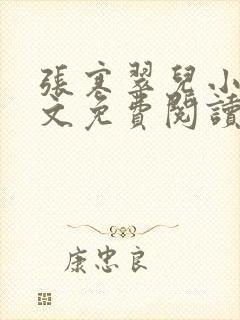 張寒翠兒小
文免費閱讀
康忠良